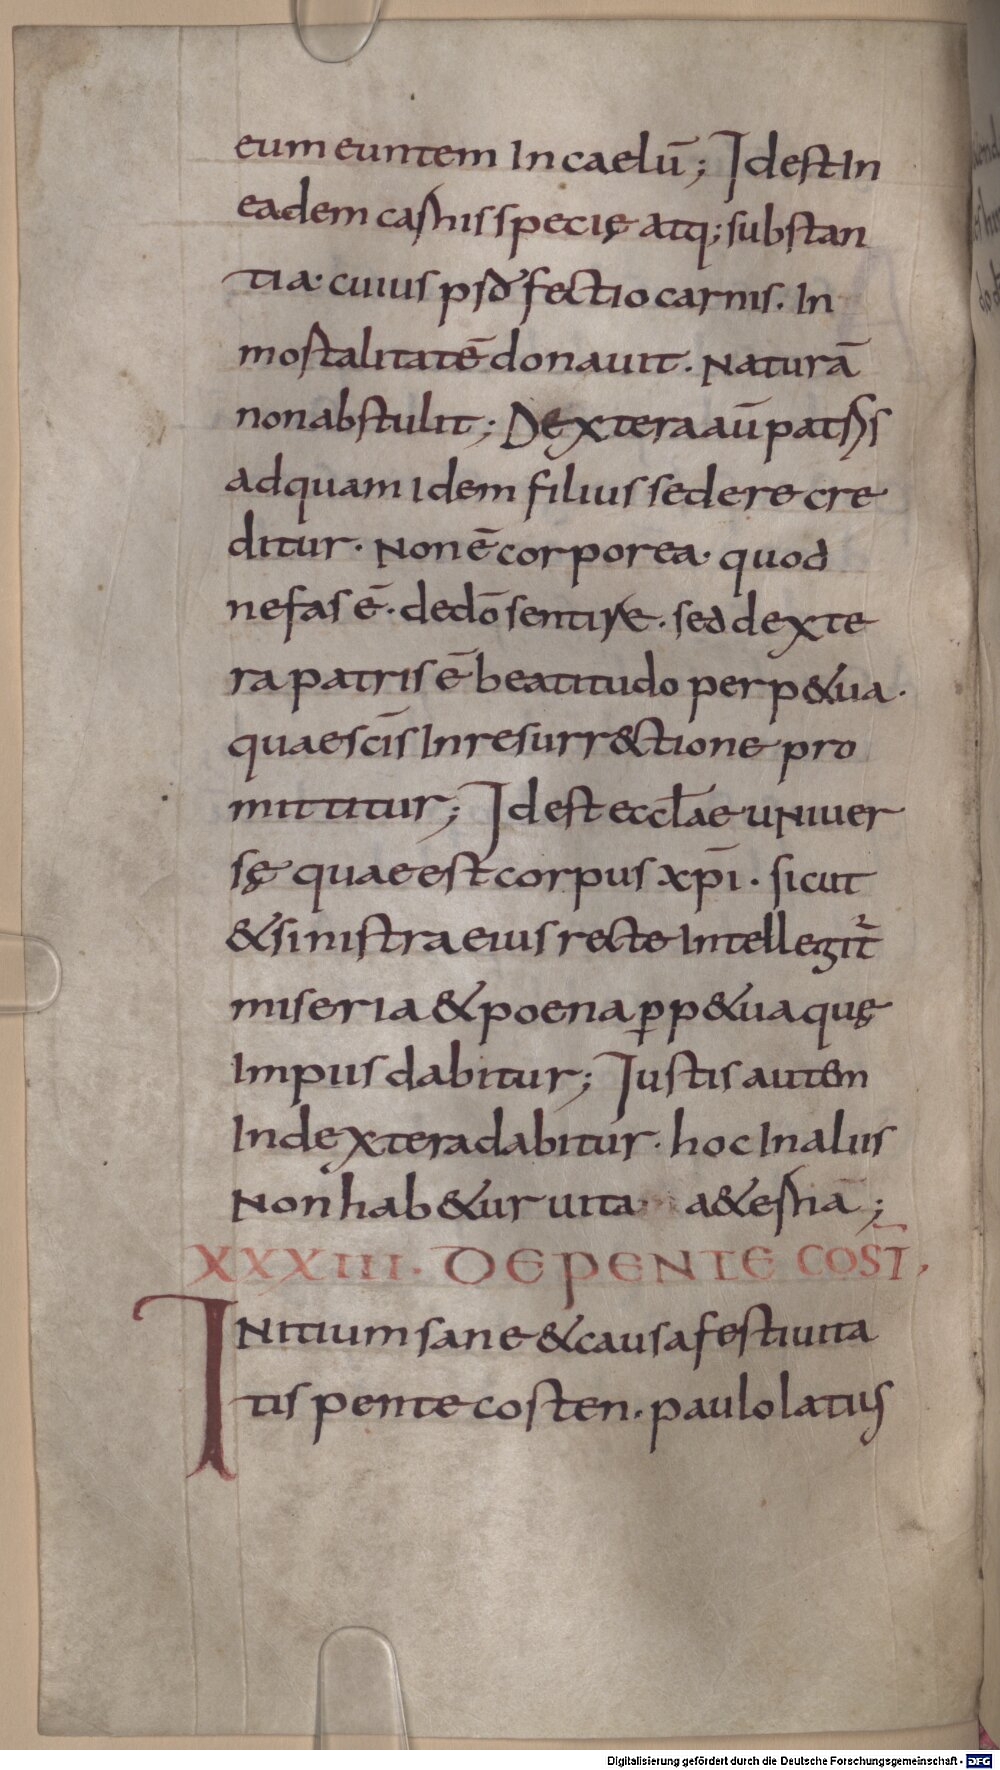 eum euntem In caelū; Id est In
eadem carnis specię atq; substan
tia· cuius profectio carnis. In
mortalitatē donauit. Naturā
non abstulit; Dextera aū patris
ad quam Idem filius sedere cre
ditur· Non ē corporea· quod
nefas ē· de dō sentire. sed dexte
ra patris ē beatitudo perp&ua·
quae scīs In resurr&ctione pro
mittitur; Id est eccłae uniuer
sę quae est corpus xp̄i· sicut
& sinistra eius recte Intellegit᷑
miseria & poena ꝑp&ua quę
Impiis dabitur; Iustis autem
In dextera dabitur· hoc In aliis
Non hab&ur uita a&ernā;
XXXIII. DE PENTECOST̄,
INitium sane & causa festiuita
tis pentecosten. paulo latius
Digitalisierung gefördert durch die Deutsche Forschungsgemeinschaft - DFG